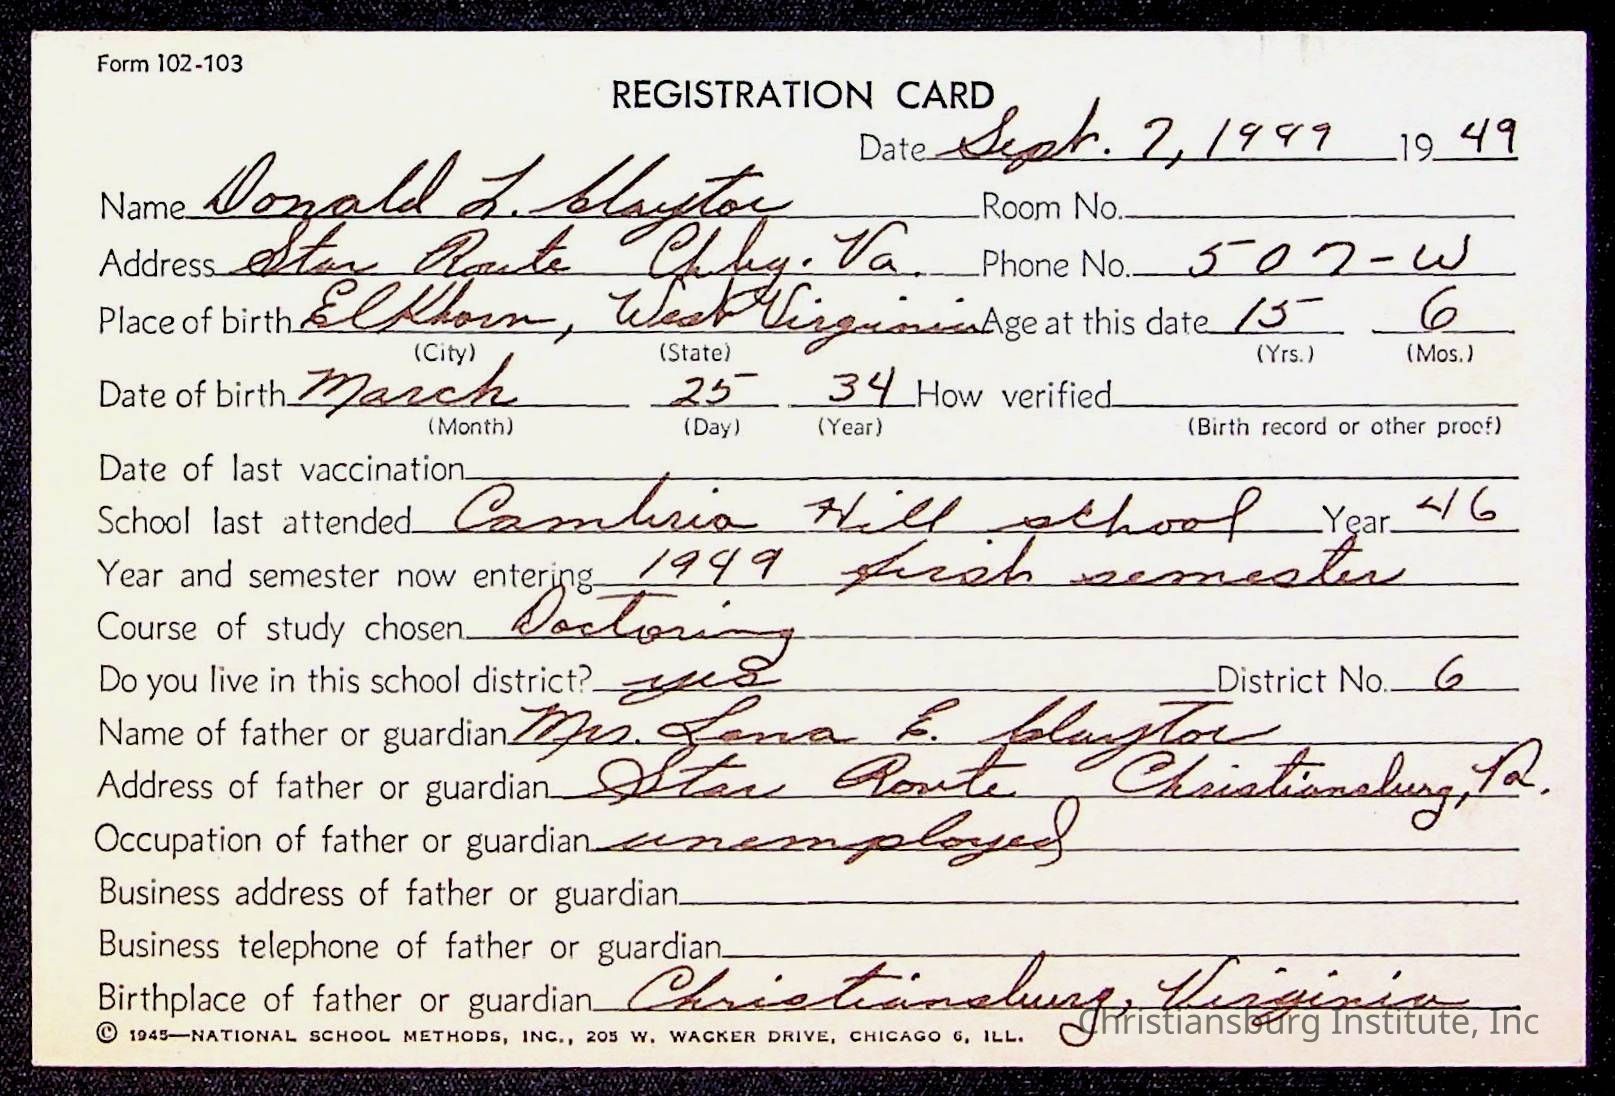 Form 102-103
REGISTRATION CARD
Date Sept. 7, 1949 19 49
Name Donald L. Claytor Room No.
Address Star Route Ch.bg. Va. Phone No. 507-W
Place of birth Elkhorn, West Virginia Age at this date 15 6
(City) (State) (Yrs.) (Mos.)
Date of birth March 25 34 How verified
(Month) (Day) (Year) (Birth record or other proof)
Date of last vaccination
School last attended Cambria Hill school Year 46
Year and semester now entering 1949 first semester
Course of study chosen Doctoring
Do you live in this school district? yes District No. 6
Name of father or guardian Mrs. Lena E. Claytor
Address of father or guardian Star Route Christiansburg, Va.
Occupation of father or guardian unemployed
Business address of father or guardian
Business telephone of father or guardian
Birthplace of father or guardian Christiansburg, Virginia
© 1945—NATIONAL SCHOOL METHODS, INC., 205 W. WACKER DRIVE, CHICAGO 6, ILL.
Christiansburg Institute, Inc